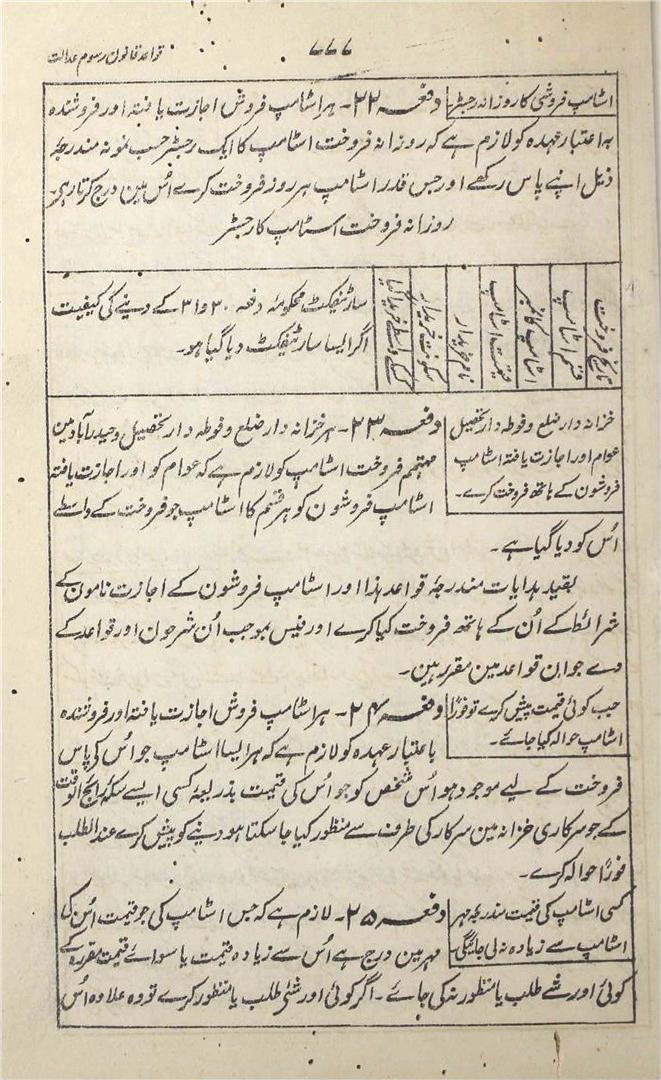 قواعد قانون رسوم عدالت
۷۷۷
اسٹامپ فروشی کا روزانہ رجسٹر
دفعہ ۲۲۔ ہر اسٹامپ فروش اجازت یافتہ اور فروشندہ
بہ اعتبار عہدہ کو لازم ہے کہ روزانہ فروخت اسٹامپ کا ایک رجسٹر حسب نمونہ مندرجہ
ذیل اپنے پاس رکھے اور جس قدر اسٹامپ ہر روز فروخت کرے اُس مین درج کرتا رہے۔
روزانہ فروخت اسٹامپ کا رجسٹر
تاریخ فروخت
قسم اسٹامپ
اسٹامپ کا نمبر
قیمت اسٹامپ
نام خریدار
سکونت خریدار
کسکے واسطے خریدا گیا
سارٹیفکٹ محکومہ دفعہ ۳۰ و ۳۱ کے دینے کی کیفیت
اگر ایسا سارٹیفکٹ دیا گیا ہو۔
خزانہ دار ضلع و فوطہ دار تحصیل
عوام اور اجازت یافتہ اسٹامپ
فروشون کے ہاتھ فروخت کرے۔
دفعہ ۲۳۔ ہر خزانہ دار ضلع و فوطہ دار تحصیل و حیدرآباد مین
مہتمم فروخت اسٹامپ کو لازم ہے کہ عوام کو اور اجازت یافتہ
اسٹامپ فروشون کو ہر قسم کا اسٹامپ جو فروخت کے واسطے
اُس کو دیا گیا ہے۔
بقید ہدایات مندرجہ قواعد ہذا اور اسٹامپ فروشون کے اجازت نامون کے
شرائط کے اُن کے ہاتھ فروخت کیا کرے اور فیس بموجب اُن شرحون اور قواعد کے
دے جو ان قواعد مین مقرر ہین۔
جب کوئی قیمت پیش کرے تو فوراً
اسٹامپ حوالہ کیا جائے۔
دفعہ ۲۴۔ ہر اسٹامپ فروش اجازت یافتہ اور فروشندہ
باعتبار عہدہ کو لازم ہے کہ ہر ایسا اسٹامپ جو اُس کی پاس
فروخت کے لیے موجود ہو اُس شخص کو جو اُس کی قیمت بذریعہ کسی ایسے سکہ رائج الوقت
کے جو سرکاری خزانہ مین سرکار کی طرف سے منظور کیا جا سکتا ہو دینے کو پیش کرے عند الطلب
فوراً حوالہ کرے۔
کسی اسٹامپ کی قیمت مندرجہ مہر
اسٹامپ سے زیادہ نہ لی جائیگی۔
دفعہ ۲۵۔ لازم ہے کہ جس اسٹامپ کی جو قیمت اُس کی
مہر مین درج ہے اُس سے زیادہ قیمت یا سوائے قیمت مقررہ کے
کوئی اور شے طلب یا منظور نہ کی جائے۔ اگر کوئی اور شئی طلب یا منظور کرے تو وہ علاوہ اُس